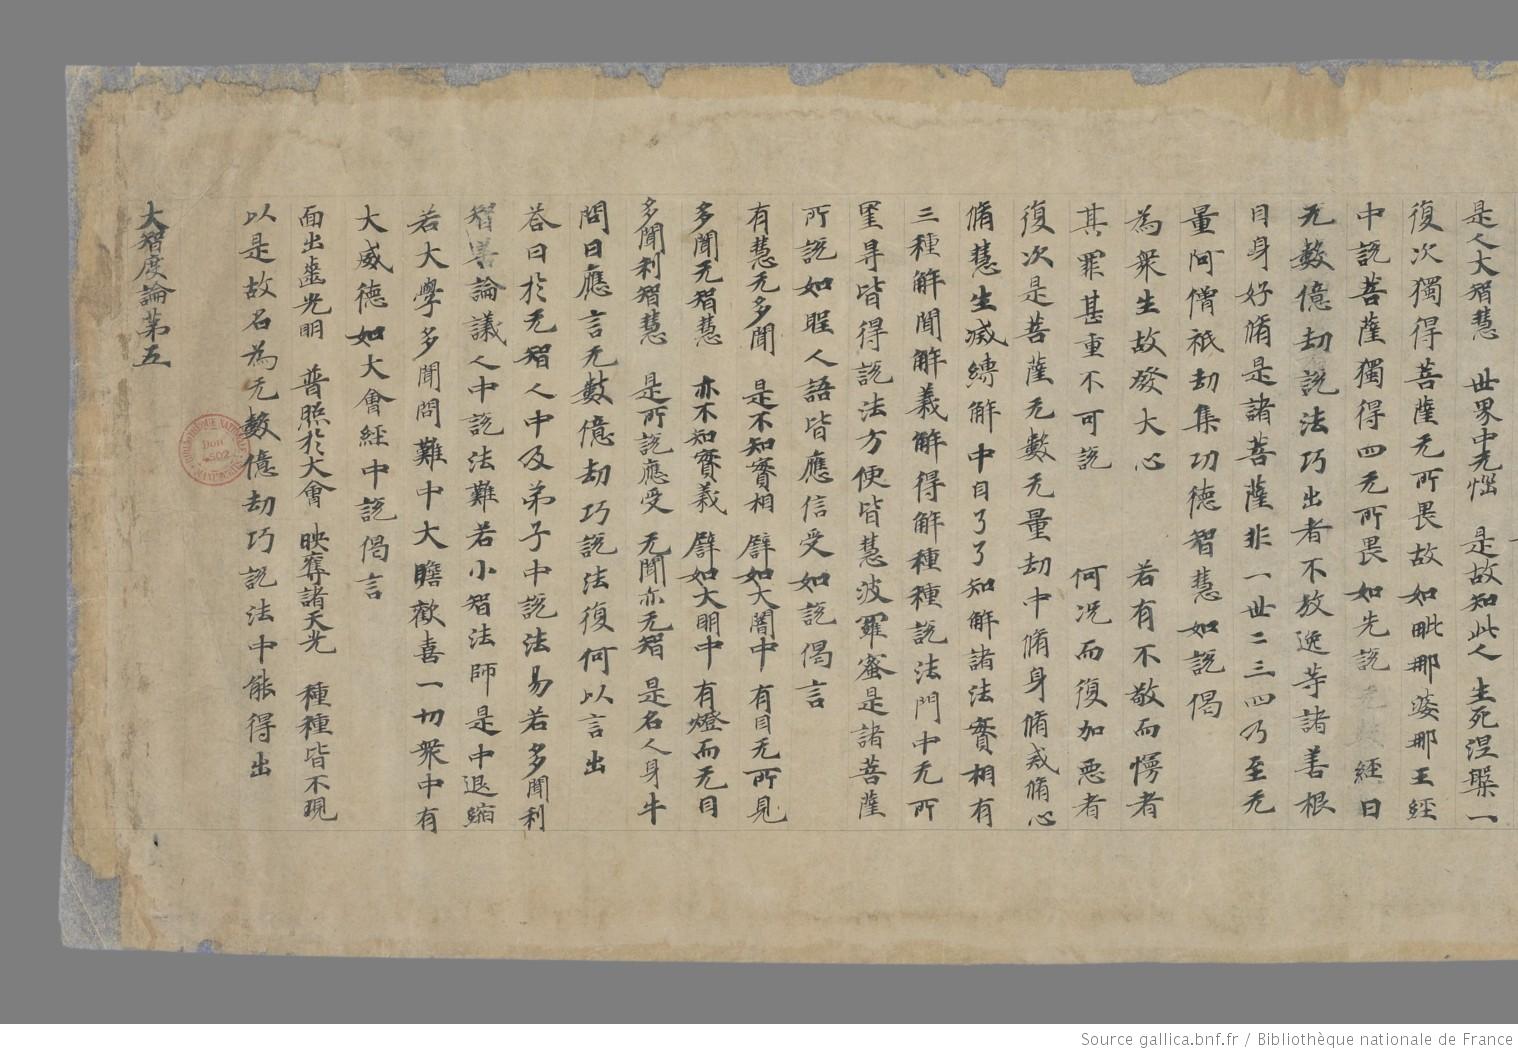 是人大智慧 世界中无惱 是故知此人 生死涅槃一
復次獨得菩薩无所畏故如毗那婆那王經
中說菩薩獨得四无所畏如先說无數經曰
无數億劫說法巧出者不放逸等諸善根
自身好脩是諸菩薩非一世二三四乃至无
量阿僧祇劫集功德智慧如說偈
為衆生故發大心 若有不敬而慢者
其罪甚重不可說 何況而復加惡者
復次是菩薩无數无量劫中脩身脩戒脩心
脩慧生滅縛解中自了了知解諸法實相有
三種解聞解義解得解種種說法門中无所
罣㝵皆得說法方便皆慧波羅蜜是諸菩薩
所說如聖人語皆應信受如說偈言
有慧无多聞 是不知實相 譬如大闇中 有目无所見
多聞无智慧 亦不知實義 譬如大明中 有燈而无目
多聞利智慧 是所說應受 无聞亦无智 是名人身牛
問曰應言无數億劫巧說法復何以言出
荅曰於无智人中及弟子中說法易若多聞利
智善論議人中說法難若小智法師是中退縮
若大學多聞問難中大膽歡喜一切衆中有
大威德如大會經中說偈言
面出齒光明 普照於大會 映奪諸天光 種種皆不現
以是故名為无數億劫巧說法中能得出
大智度論第五
Don 4502
Source gallica.bnf.fr / Bibliothèque nationale de France